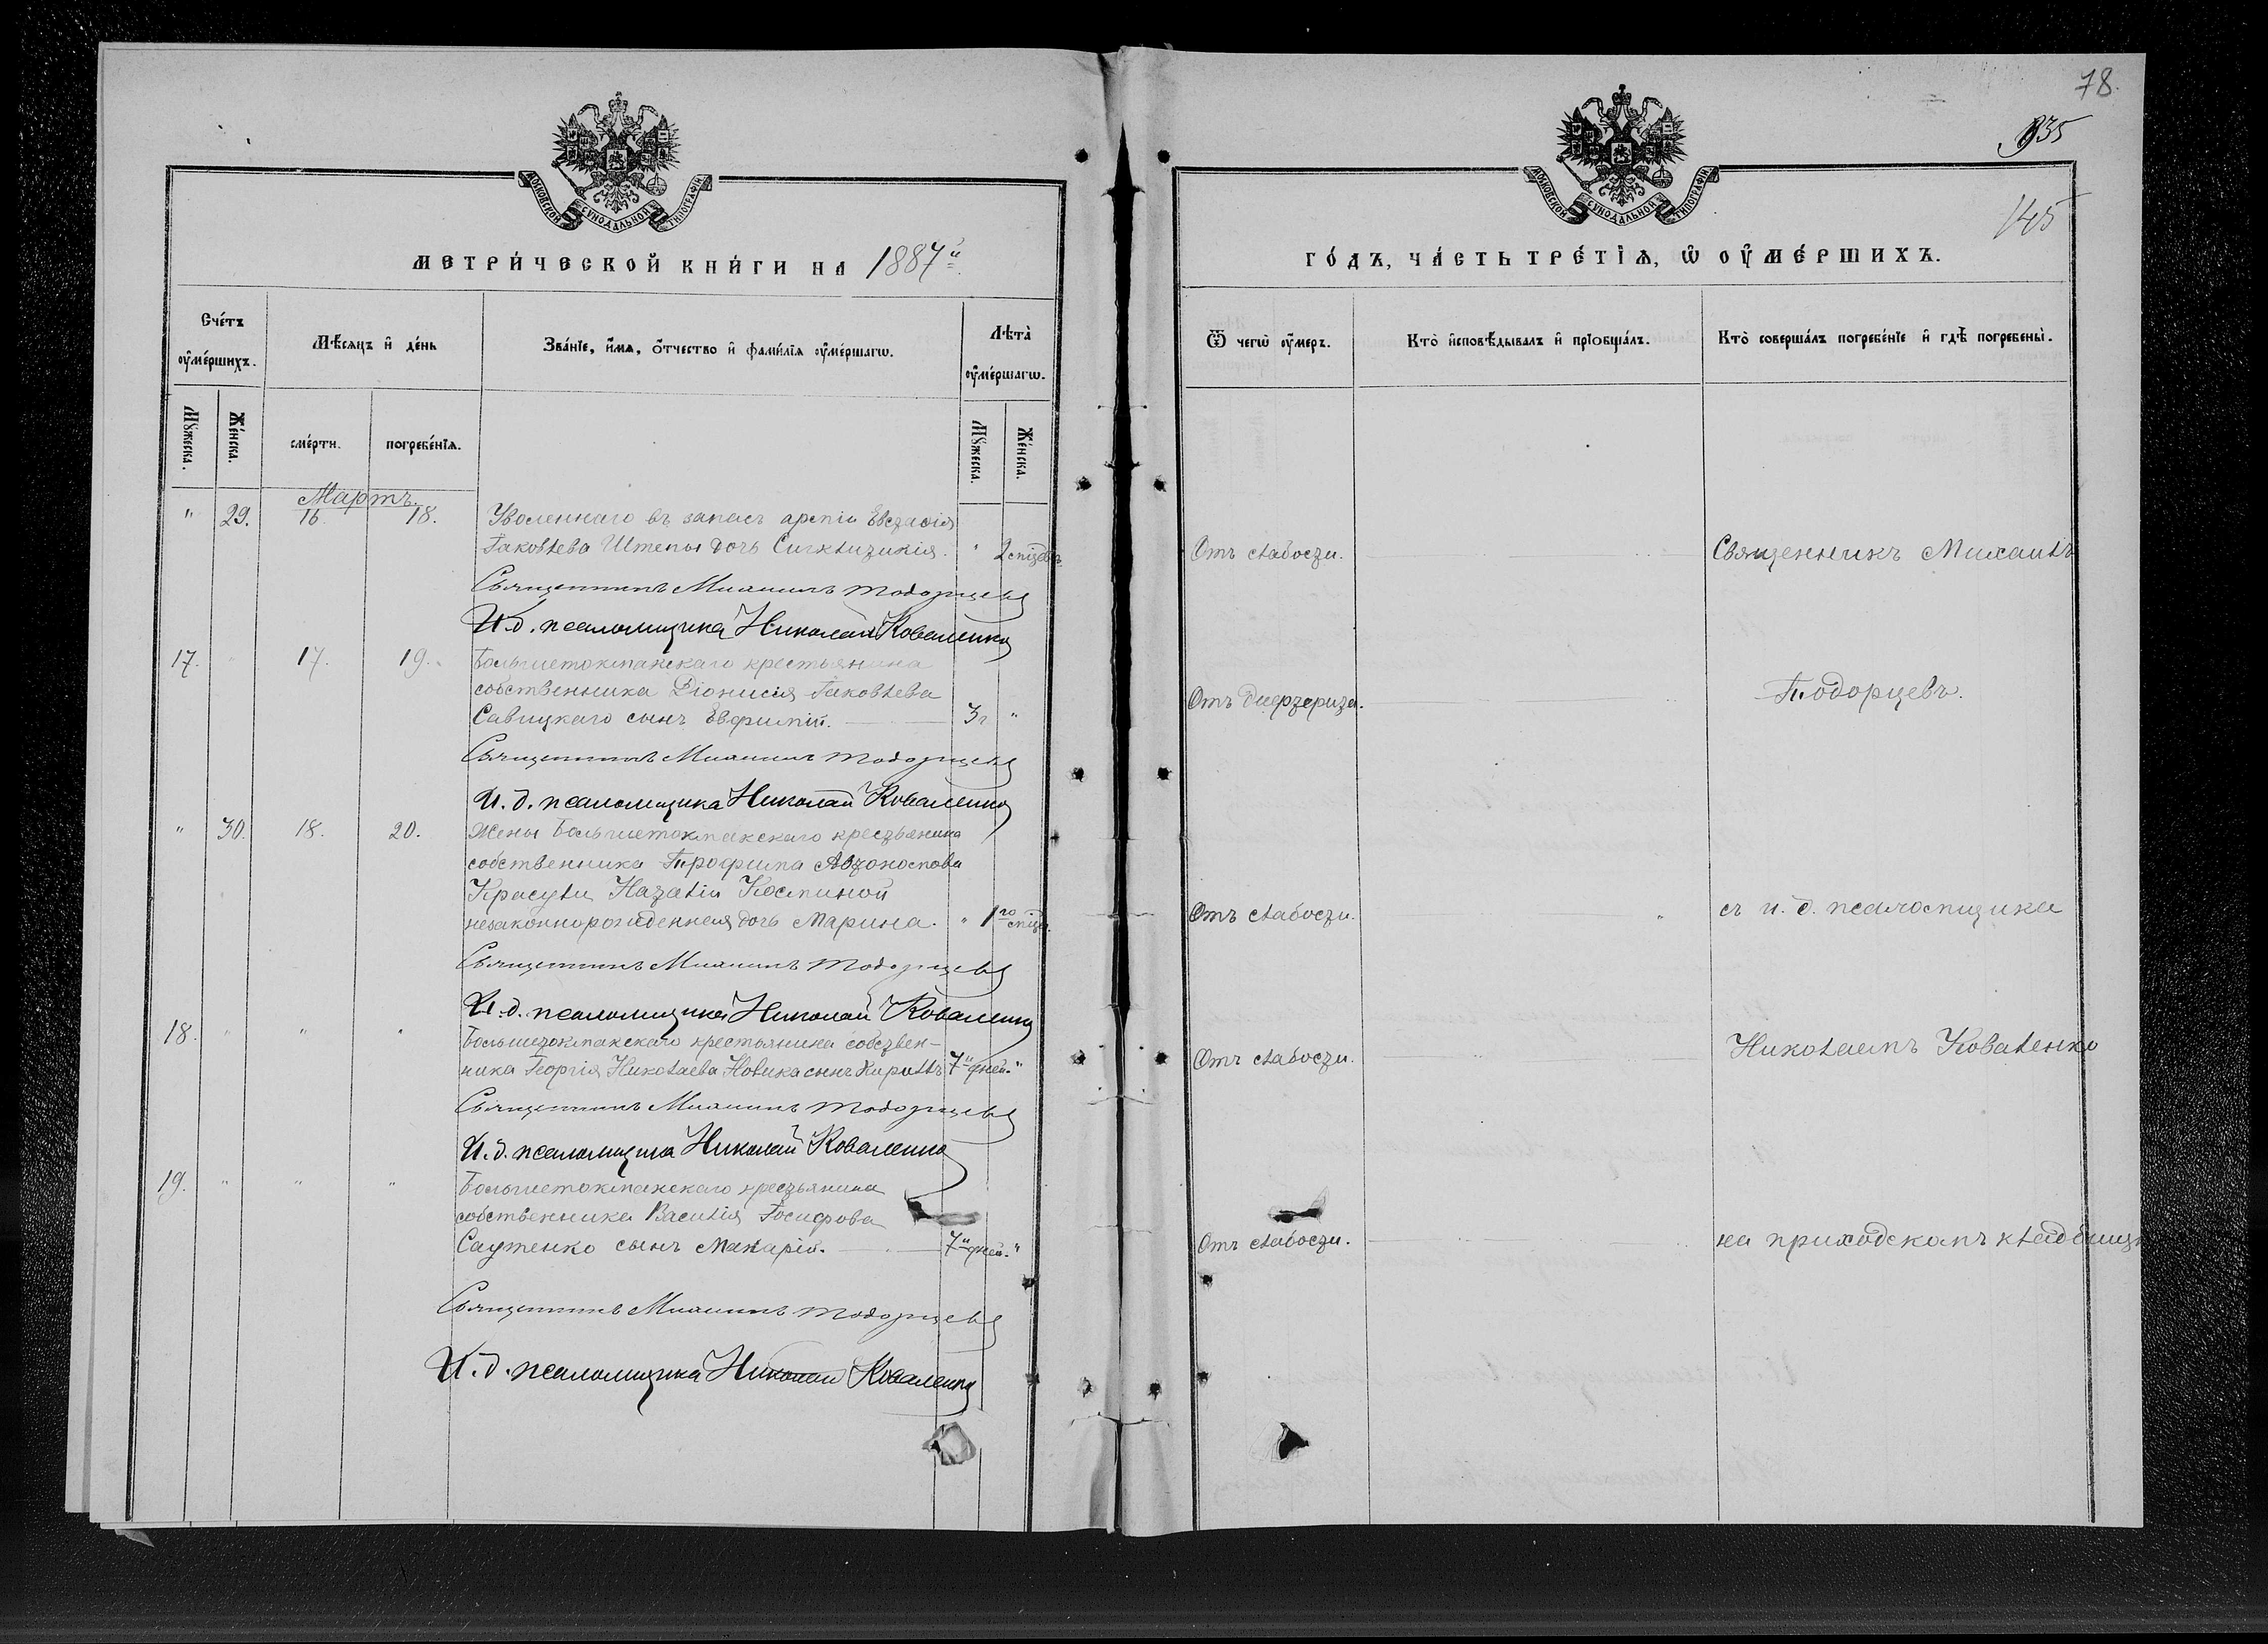 МОСКОВСКОЙ СѴНОДАЛЬНОЙ ТИПОГРАФІИ
МЕТРИ́ЧЕСКОЙ КНИ́ГИ НА 1887й
Сче́тъ оумéршихъ.
Мѣ́сяцъ и де́нь
Зва́нїе, и́мя, о́тчество и фами́лїя оумéршагω.
Лѣта̀ оумéршагω.
Мꙋ́жеска.
Же́нска.
сме́рти.
погребе́нїя.
Мꙋ́жеска.
Же́нска.
Мартъ.
" 29. 16. 18. Уволеннаго въ запасъ арміи Евстафія
Іаковлева Штепы дочь Сигклитикія. " 2 мѣсяц.
Священникъ Михаилъ Тодорцевъ
И.д. псаломщика Николай Коваленко
17. " 17. 19. Большетокмакскаго крестьянина
собственника Діонисія Іаковлева
Савицкаго сынъ Евфимій. 3г "
Священникъ Михаилъ Тодорцевъ
И.д. псаломщика Николай Коваленко
" 30. 18. 20. Жены Большетокмакскаго крестьянина
собственника Трофима Автономова
Красули Наталіи Косминой
незаконнорожденная дочь Марина. " 1го мѣсяц.
Священникъ Михаилъ Тодорцевъ
И.д. псаломщика Николай Коваленко
18. " " " Большетокмакскаго крестьянина собствен-
ника Георгія Николаева Новика сынъ Кириллъ 7и дней. "
Священникъ Михаилъ Тодорцевъ
И.д. псаломщика Николай Коваленко
19. " " " Большетокмакскаго крестьянина
собственника Василія Іосифова
Саутенко сынъ Макарій. 7и дней. "
Священникъ Михаилъ Тодорцевъ
И.д. псаломщика Николай Коваленко
78.
935
145
МОСКОВСКОЙ СѴНОДАЛЬНОЙ ТИПОГРАФІИ
ГО́ДЪ, ЧА́СТЬ ТРЕ́ТЇѦ, Ѡ ОУМЕ́РШИХЪ.
Ѿ чегѡ оу́меръ.
Кто̀ исповѣ́дывалъ и прїобща́лъ.
Кто̀ соверша́лъ погребе́нїе и гдѣ̀ погребены̀.
Отъ слабости.
Священникъ Михаилъ
Отъ дифтерита.
Тодорцевъ.
Отъ слабости.
съ и. д. псаломщика
Отъ слабости.
Николаемъ Коваленко
Отъ слабости.
на приходскомъ кладбищѣ